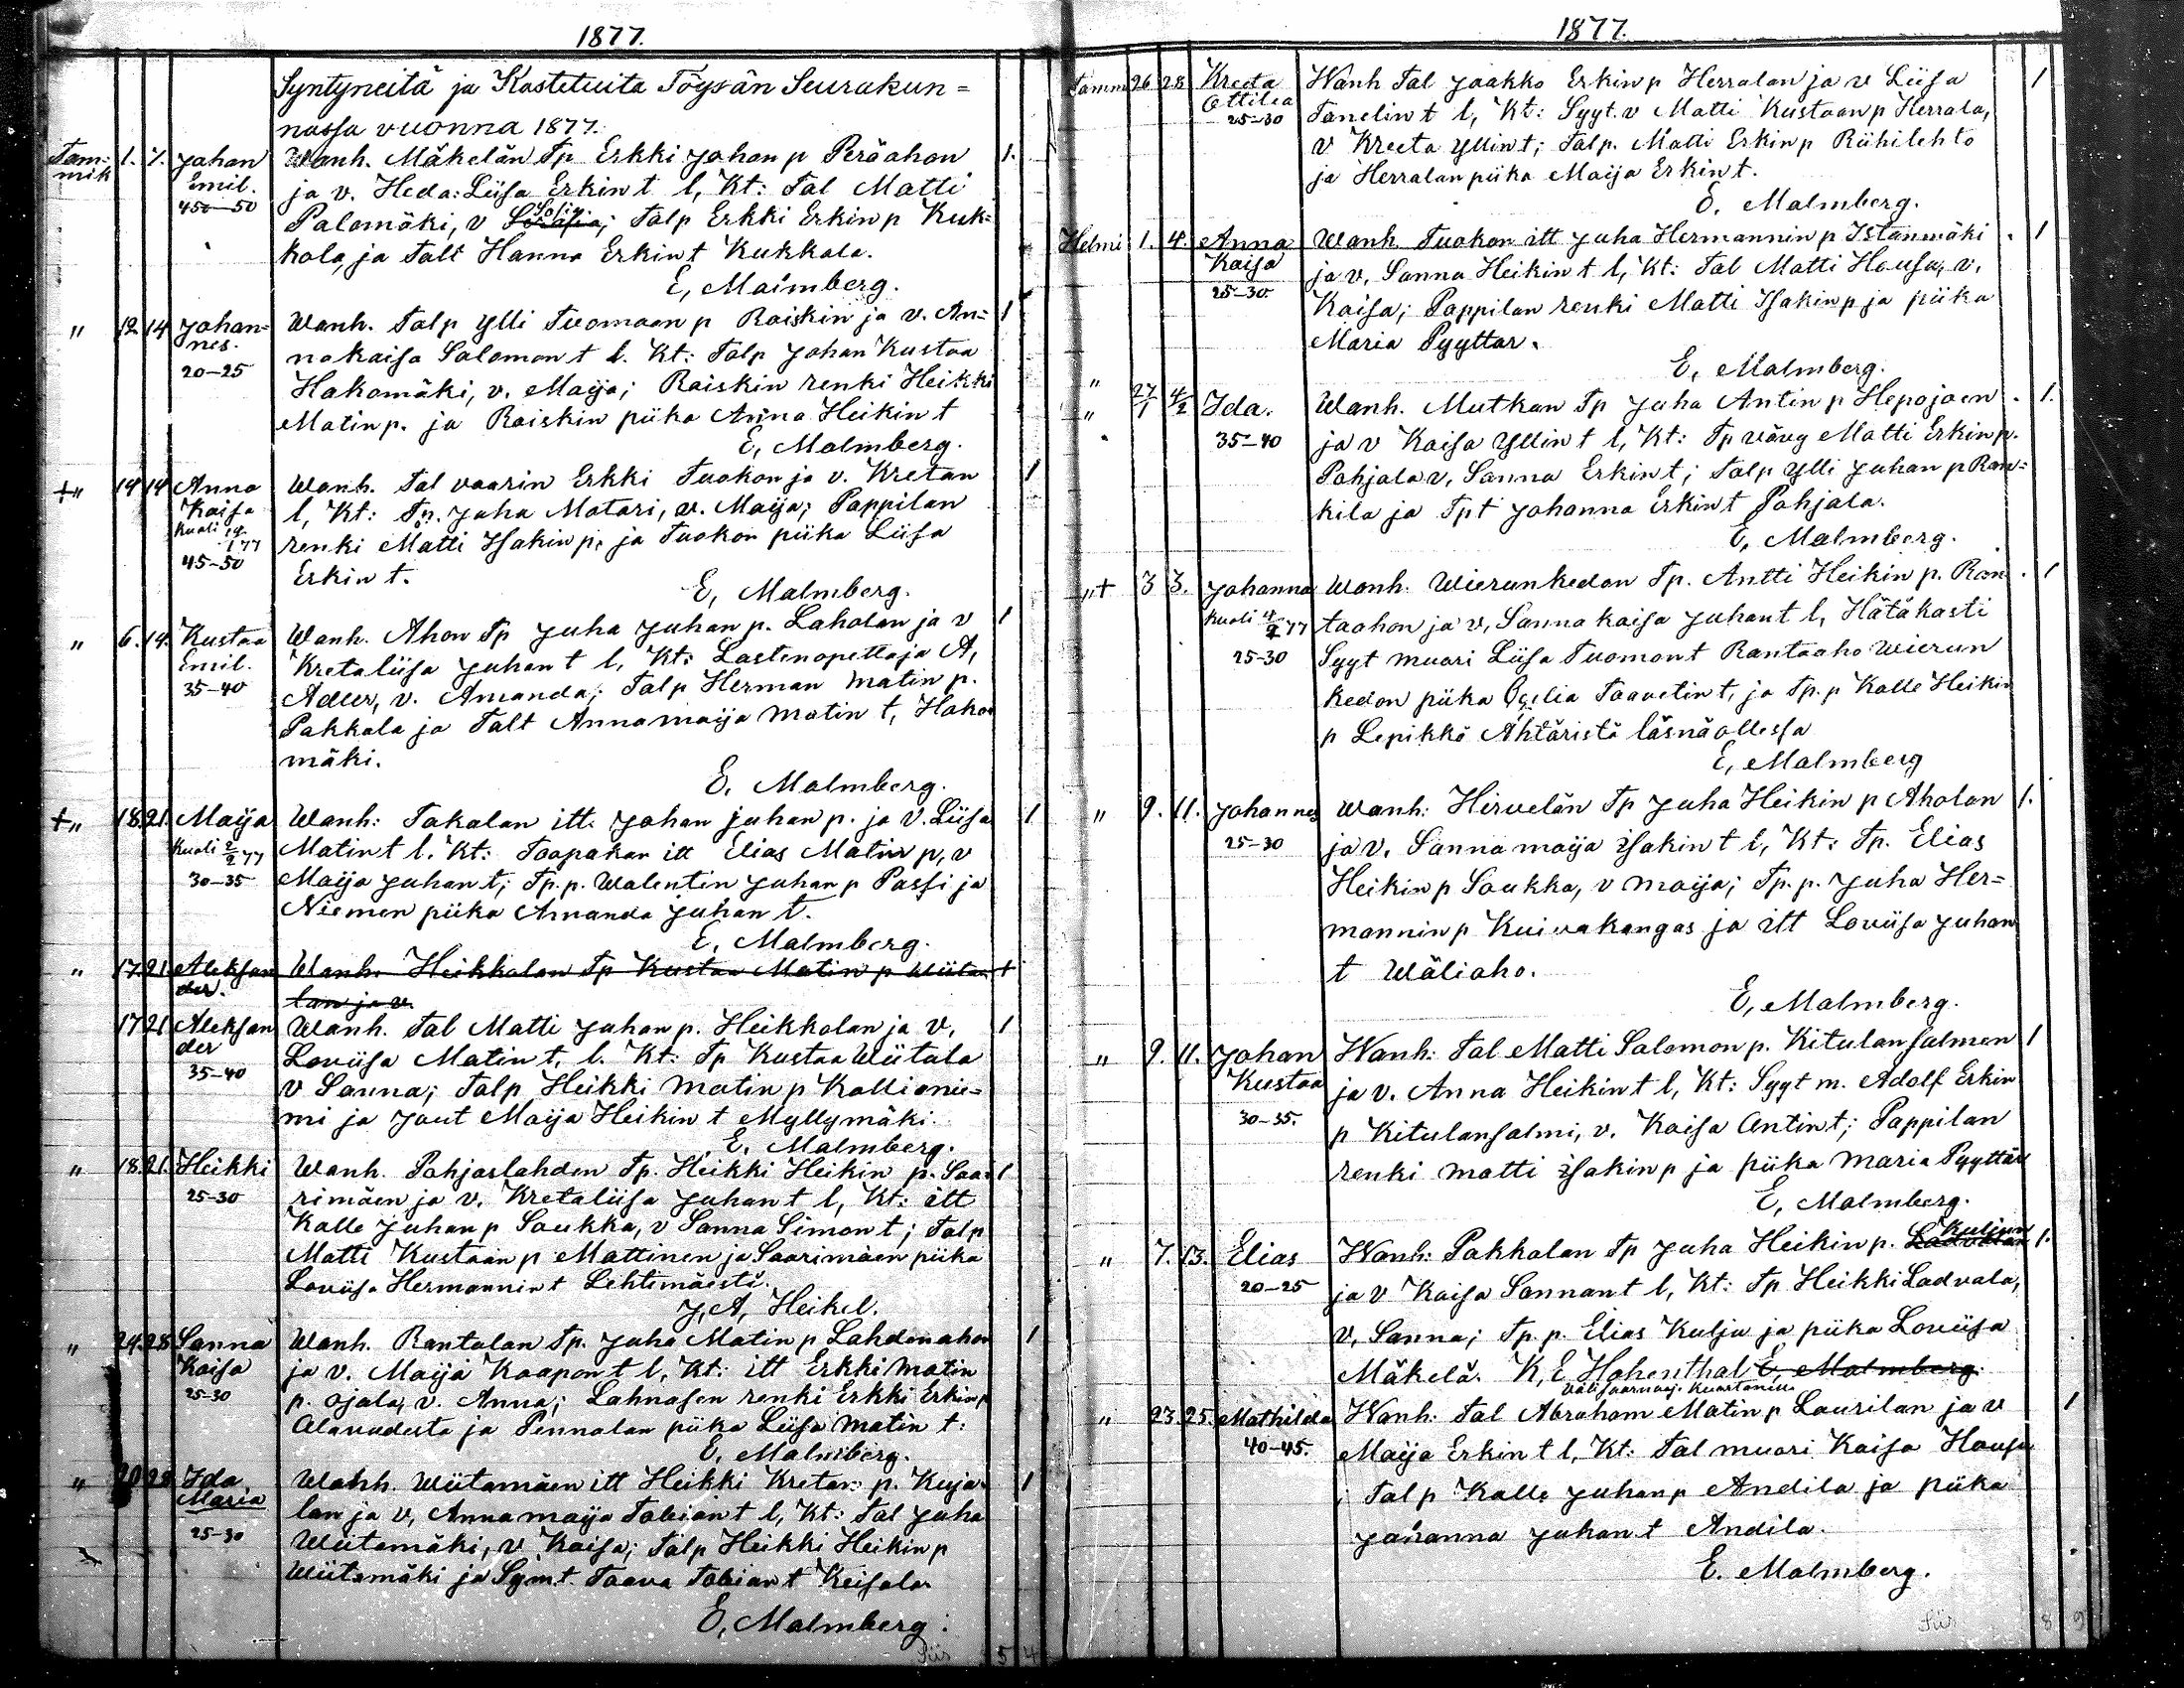 1877.
Syntyneitä ja Kastetuita Töysän Seurakun=
nassa vuonna 1877.
Tam- 1. 7. Johan Wanh. Mäkelän Tp Erkki Johan p Peräahon 1.
mik Emil. ja v. Heda: Liisa Erkin t l, Kt: Tal Matti
45-50 Palomäki, v Sofia; Talp Erkki Erkin p Kuk=
kola, ja Talt Hanna Erkin t Kukkola.
E, Malmberg.
" 12 14 Johan= Wanh. Talp Ylli Tuomaan p Raiskin ja v. An= 1
nes. nakaisa Salomon t l. Kt: Talp Johan Kustaa
20-25 Hakomäki, v. Maija; Raiskin renki Heikki
Matin p. ja Raiskin piika Anna Heikin t
E, Malmberg.
+" 14 14 Anna Wanh. Tal vaarin Erkki Tuokon ja v. Kretan 1
Kaisa l, Kt: Tp. Juha Matari, v. Maija; Pappilan
Kuoli renki Matti Isakin p. ja Tuokon piika Liisa
45-50 Erkin t.
E, Malmberg.
" 6. 14. Kustaa Wanh. Ahon Tp Juha Juhan p. Laholan ja v 1
Emil. Kretaliisa Juhan t l, Kt: Lastenopettaja A,
35-40 Adler, v. Amanda; Talp Herman Matin p.
Pakkala ja Talt Annamaija Matin t, Hako
mäki.
E. Malmberg.
+" 18. 21. Maija Wanh: Takalan itt. Johan Juhan p. ja v. Liisa 1
Kuoli 2/2 77 Matin t l. Kt: Taapakan itt Elias Matin p, v
30-35 Maija Juhan t; Tp. p. Walentin Juhan p Passi ja
Niemen piika Amanda Juhan t.
E, Malmberg.
" 17. 21. Aleksan Wanh. Heikkalan Tp Kustaa Matin p Wiita +
der. lan ja v.
17 21 Aleksan Wanh. Tal Matti Juhan p. Heikkolan ja v, 1
der Loviisa Matin t, l. Kt: Tp Kustaa Wiitala
35-40 v Sanna; Talp Heikki Matin p Kallionie=
mi ja Jout Maija Heikin t Myllymäki.
E. Malmberg.
" 18. 21. Heikki Wanh. Pohjaslahden Tp. Heikki Heikin p. Saa= 1
25-30 rimäen ja v. Kretaliisa Juhan t l, Kt: itt
Kalle Juhan p Saukka, v Sanna Simon t; Talp
Matti Kustaan p Mattinen ja Saarimäen piika
Loviisa Hermannin t Lehtimäestä.
J, A, Heikel.
" 24. 28 Sanna Wanh. Rantalan Tp. Juha Matin p Lahdenahon 1
Kaisa ja v. Maija Kaapon t l, Kt: itt Erkki Matin
25-30 p. Ojala, v. Anna; Lahnasen renki Erkki Erkin p
Alavudesta ja Pennalan piika Liisa Matin t:
E, Malmberg.
" 20 28 Ida Wanh. Wiitamäen itt Heikki Kretan p. Kuja= 1
Maria lan ja v, Annamaija Tobian t l, Kt: Tal Juha
25-30 Wiitamäki, v Kaisa; Talp Heikki Heikin p
Wiitamäki ja Symt. Taava Tobian t Keisala
E, Malmberg.
Siis 5 4
1877.
Tamm 26 28 Kreeta Wanh Tal Jaakko Erkin p Herralan ja v Liisa 1
Ottilia Tanelin t l, Kt: Syyt. v Matti Kustaan p Herrala,
25-30 v Kreeta Yllin t; Talp. Matti Erkin p Riihilehto
ja Herralan piika Maija Erkin t.
E. Malmberg.
Helmi 1. 4. Anna Wanh Tuokon itt Juha Hermannin p Istanmäki 1
Kaisa ja v, Sanna Heikin t l, Kt: Tal Matti Hausa, v.
25-30. Kaisa; Pappilan renki Matti Isakin p ja piika
Maria Pyyttar.
E, Malmberg.
" 27/1 4/2 Ida. Wanh. Mutkan Tp Juha Antin p Hepojoen 1.
35-40 ja v Kaisa Yllin t l, Kt: Tp vävy Matti Erkin p.
Pohjala v, Sanna Erkin t; Talp Ylli Juhan p Ran=
kila ja Tpt Johanna Erkin t Pohjala.
E, Malmberg.
"+ 3 3. Johanna Wanh. Wierunkedon Tp. Antti Heikin p. Ran 1
Kuoli 4/2 77 taahon ja v, Sanna kaisa Juhan t l, Hätäkasti
25-30 Syyt muori Liisa Tuomon t Rantaaho Wierun
kedon piika Taavetin t, ja Tp. p Kalle Heikin
p Lepikkö Ähtäristä läsnäollessa
E, Malmberg
" 9. 11. Johannes Wanh: Hirvelän Tp Juha Heikin p Aholan 1.
25-30 ja v. Sanna maija Isakin t l, Kt: Tp. Elias
Heikin p Saukka, v Maija; Tp. p. Juha Her=
mannin p Kuivakangas ja itt Loviisa Juhan
t Wäliaho.
E, Malmberg.
" 9. 11. Johan Wanh: Tal Matti Salomon p. Kitulansalmen 1
Kustaa ja v. Anna Heikin t l, Kt: Syyt m. Adolf Erkin
30-35. p Kitulansalmi, v. Kaisa Antin t; Pappilan
renki Matti Isakin p ja piika Maria Pyyttär
E, Malmberg.
" 7. 13. Elias Wanh: Pakkalan Tp Juha Heikin p. Ladvalan Kuljun 1.
20-25 ja v Kaisa Sannan t l, Kt: Tp Heikki Ladvala,
v, Sanna; Tp. p. Elias Kulju ja piika Loviisa
Mäkelä. K, E Hohenthal E, Malmberg
välisaarnaaja
" 23. 25. Mathilda Wanh: Tal Abraham Matin p Laurilan ja v 1
40-45. Maija Erkin t l, Kt: Tal muori Kaisa Hausa
; Talp Kalle Juhan p Andila ja piika
Johanna Juhan t Andila.
E. Malmberg.
Siis 8 9